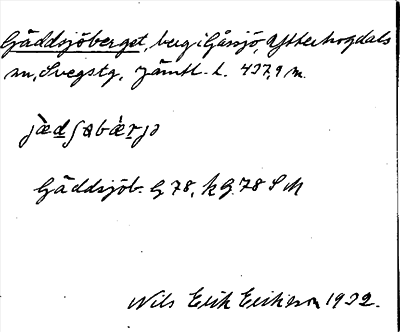 Gäddsjöberget, berg i Gåssjö, Ytterhogdals
sn, Svegs tg, Jämtl. l. 437,9 m.
jæ̀dʃɑbæ̀rjə
Gäddsjöb. G 78, kG 78 S M
Nils Erik Erikson 1932.